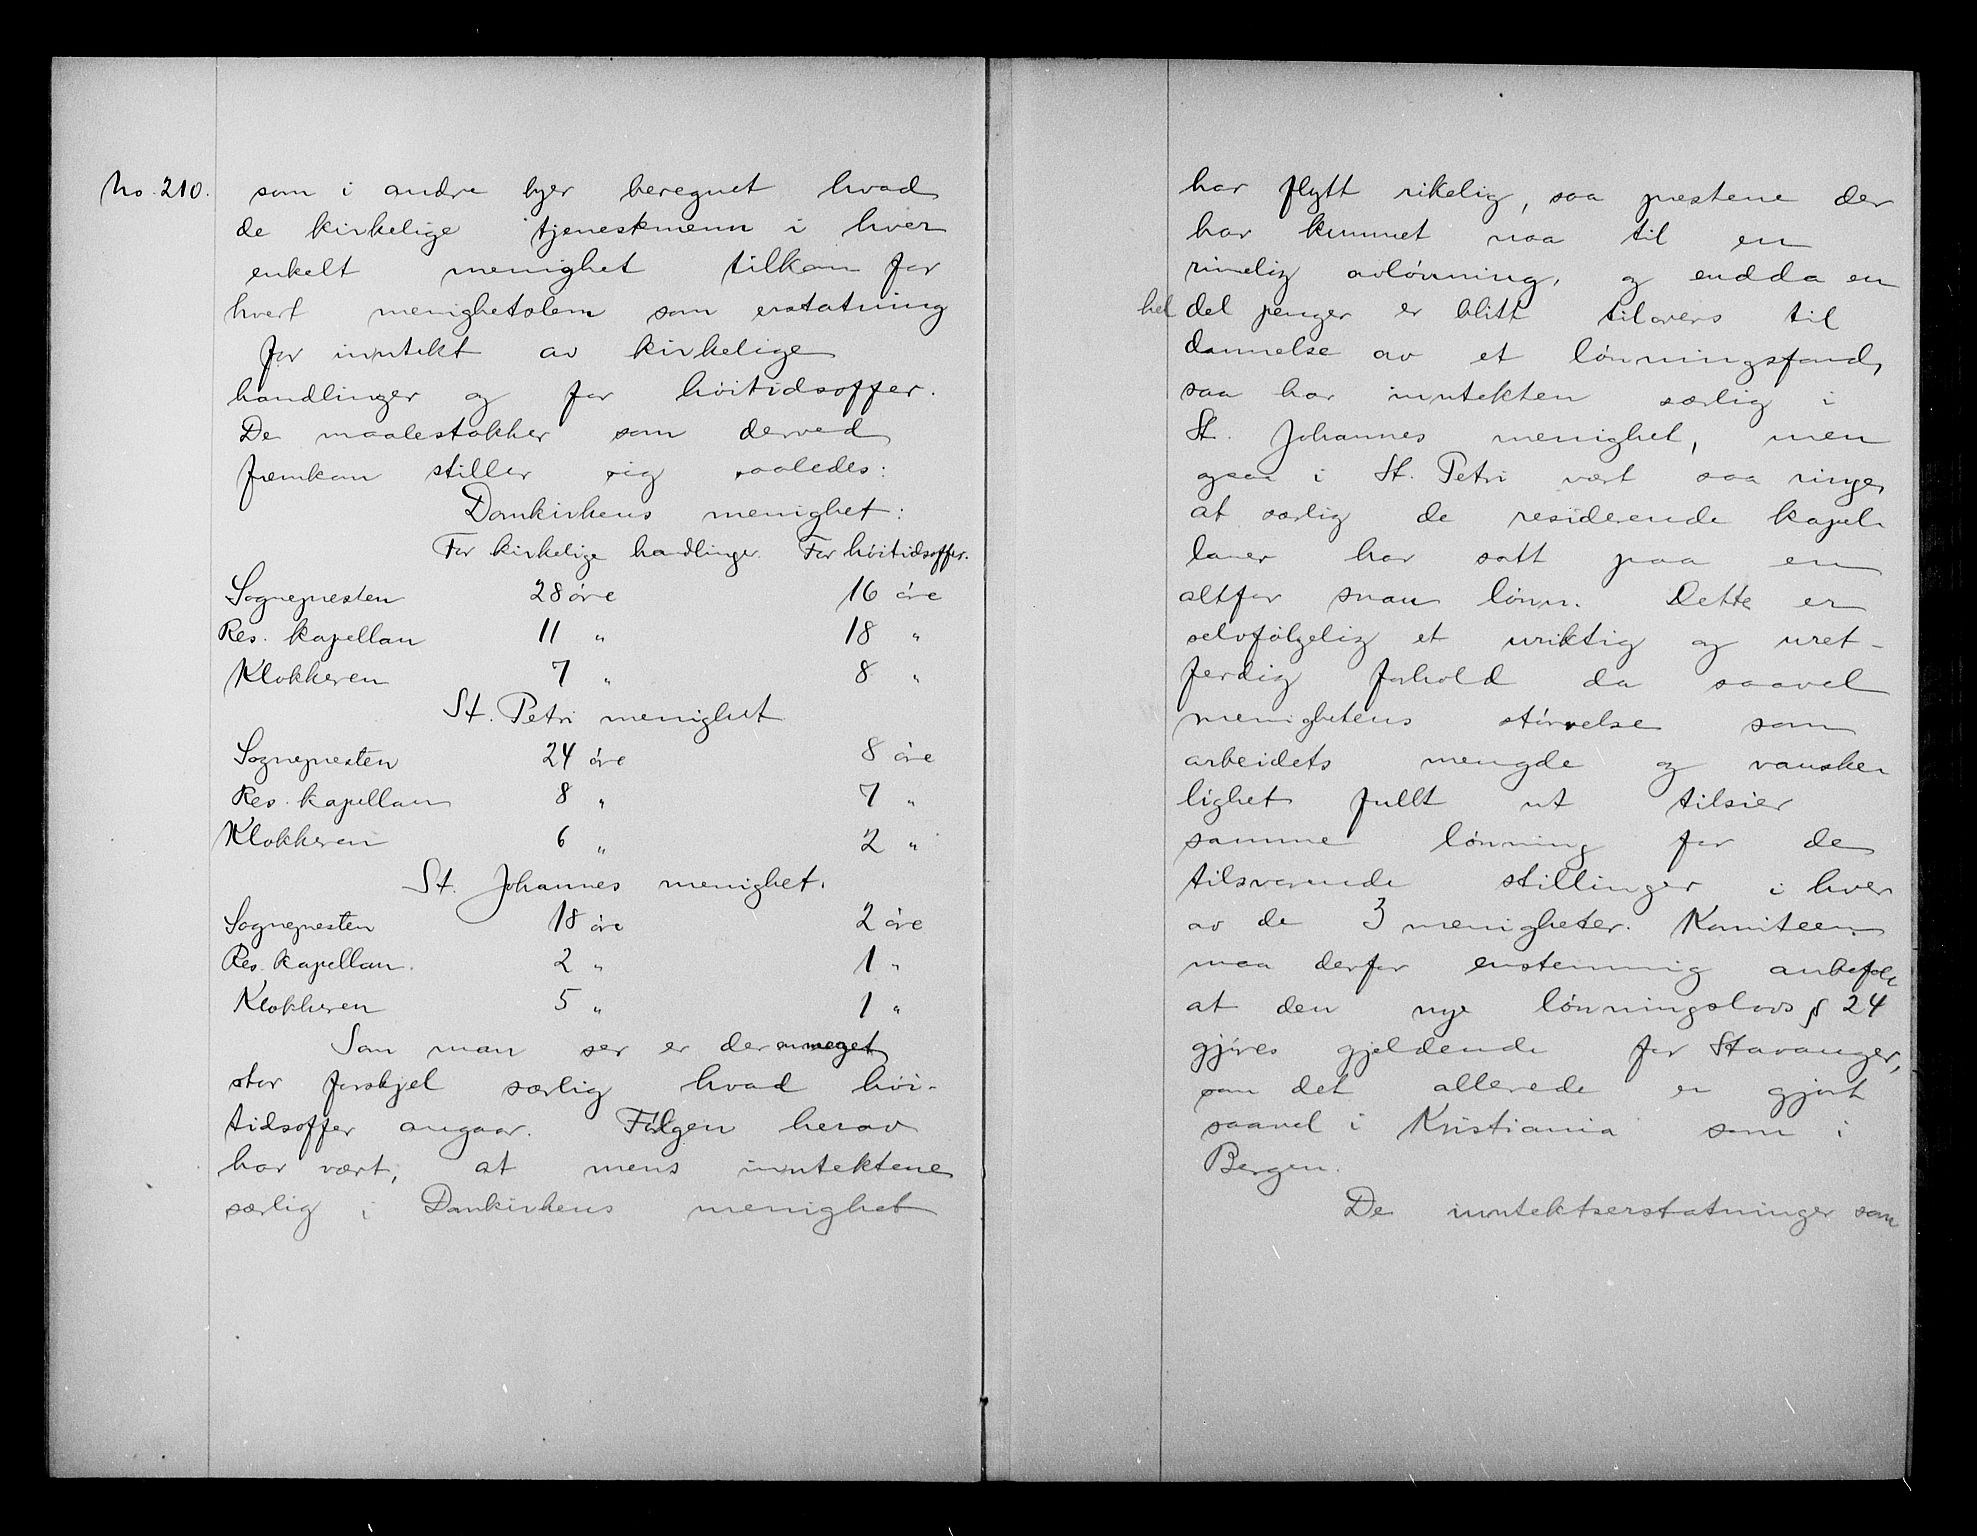 No. 210. som i andre byer beregnet hvad
de kirkelige tjenestemenn i hver
enkelt menighet tilkom for
hvert menighetslem som erstatning
for inntekt av kirkelige
handlinger og for höitidsoffer.
De maalestokker som derved
fremkom stiller sig saaledes:
Domkirkens menighet:
For kirkelige handlinger. For höitidsoffer.
Sognepresten 28 öre 16 öre
Res. kapellan 11 " 18 "
Klokkeren 7 " 8 "
St. Petri menighet
Sognepresten 24 öre 8 öre
Res. kapellan 8 " 7 "
Klokkeren 6 " 2 "
St. Johannes menighet.
Sognepresten 18 öre 2 öre
Res. kapellan. 2 " 1 "
Klokkeren 5 " 1 "
Som man ser er der en meget
stor forskjel særlig hvad höi-
tidsoffer angaar. Fölgen herav
har vært, at mens inntektene
særlig i Domkirkens menighet
har flytt rikelig, saa prestene der
har kunnet naa til en
rimelig avlönning, og endda en
hel del penger er blitt tilovers til
dannelse av et lönningsfond,
saa har inntekten særlig i
St. Johannes menighet, men
ogsaa i St. Petri vært saa ringe,
at særlig de residerende kapel-
laner har satt paa en
altfor smaa lönn. Dette er
selvfölgelig et uriktig og uret-
ferdig forhold da saavel
menighetens störrelse som
arbeidets mengde og vanske-
lighet fullt ut tilsier
samme lönning for de
tilsvarende stillinger i hver
av de 3 menigheter. Komiteen
maa derfor enstemmig anbefale
at den nye lönningslovs § 24
gjöres gjeldende for Stavanger,
som det allerede er gjort
saavel i Kristiania som i
Bergen.
De inntektserstatninger som